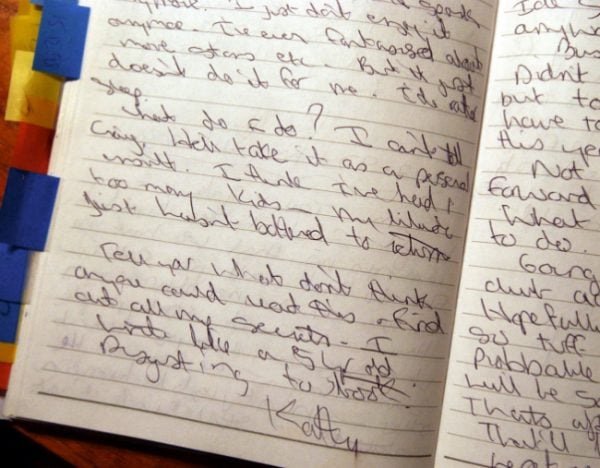 anymore. I just don't enjoy it
anymore. I've even fantasised about
more stars etc. But it just
doesn't do it for me. I'd rather
sleep
What do I do? I can't tell
Craig. He'll take it as a personal
insult. I think I've had 1
too many kids - my libido
just hasn't bothered to return
Tell you what don't think
anyone could read this & find
out all my secrets. I
write like a 5 yr old
Disgusting to look.
Kathy
Idle
anyho
Bus
Didnt
but to
have to
this ye
Not
Forward
What
to do.
Going
club a
Hopefull
so tuff
Probable
hell be s
Thats a
That'll